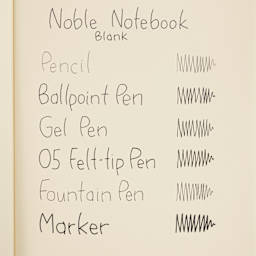 Noble Notebook
Blank
Pencil
Ballpoint Pen
Gel Pen
05 Felt-tip Pen
Fountain Pen
Marker